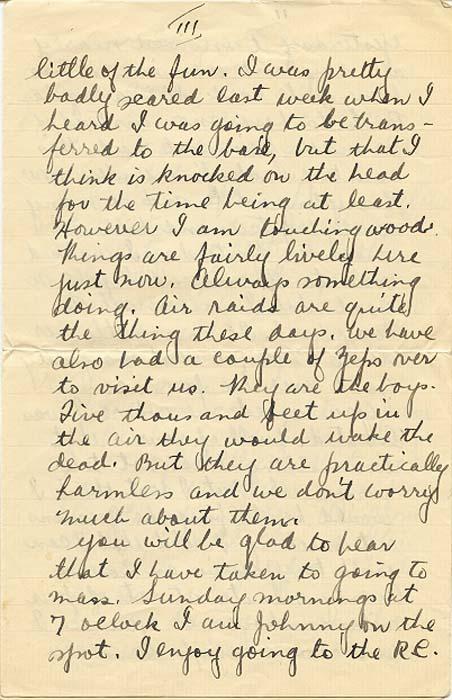 III
little of the fun. I was pretty
badly scared last week when I
heard I was going to be trans-
ferred to the base, but that I
think is knocked on the head
for the time being at least.
However I am touching wood.
Things are fairly lively here
just now. Always something
doing. Air raids are quite
the thing these days. we have
also had a couple of Zeps over
to visit us. They are the boys.
Five thousand feet up in
the air they would wake the
dead. But they are practically
harmless and we don't worry
much about them.
you will be glad to hear
that I have taken to going to
mass. Sunday mornings at
7 oclock I am Johnny on the
spot. I enjoy going to the R.C.